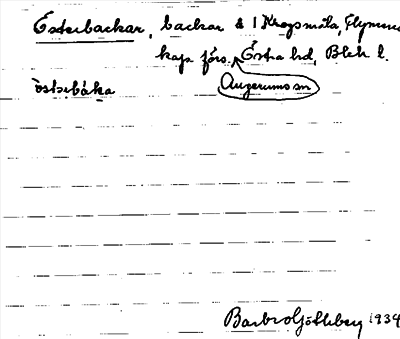 Österbackar, backar å 1 Krogsmåla, Flymens
kap förs. Östra hd, Blek l.
Augerums sn
östərbáka
Barbro Götheberg 1934